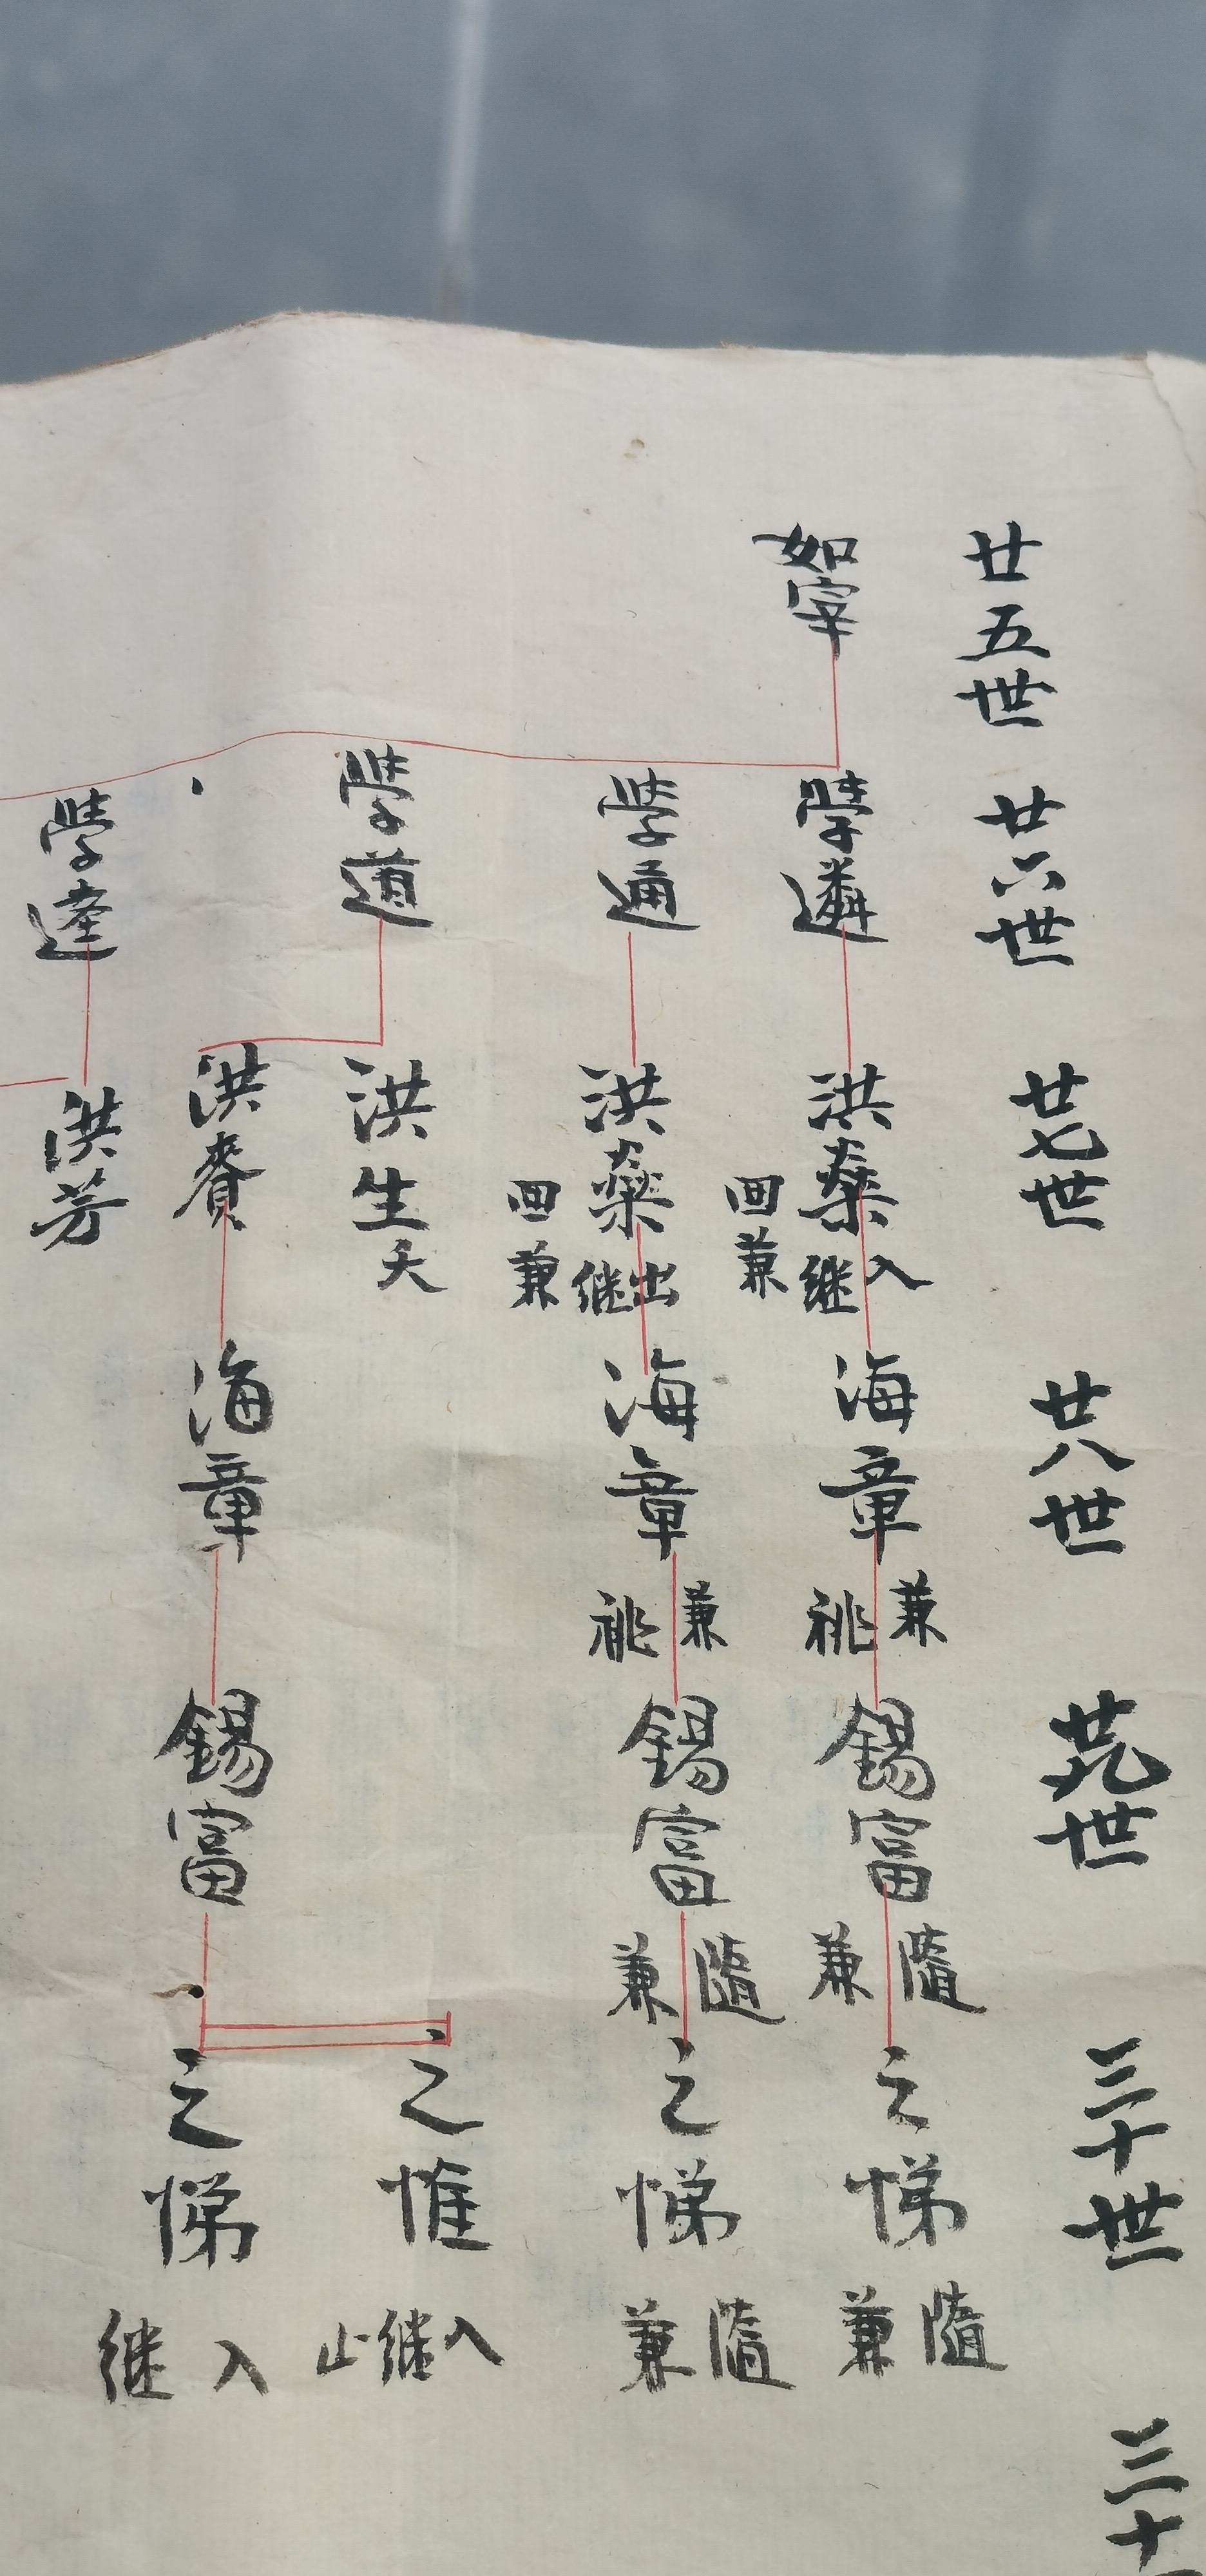 廿五世
廿六世
廿七世
廿八世
廿九世
三十世
三十
如宰
學遴
洪藥
入继
回兼
海章
兼祧
錫富
隨兼
之悌
隨兼
學通
洪藥
出继
回兼
海章
兼祧
錫富
隨兼
之悌
隨兼
學道
洪生
夭
洪賚
海章
錫富
之惟
入继止
之悌
入继
學達
洪芳